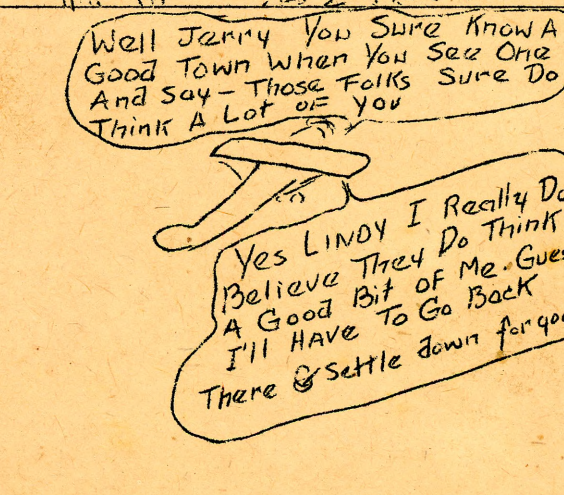 Well Jerry You Sure Know A
Good Town When You See One
And Say - Those Folks Sure Do
Think A Lot of You
Yes LINDY I Really Do
Believe They Do Think
A Good Bit of Me. Gues
I'll HAVE To Go Back
There & Settle down for goo